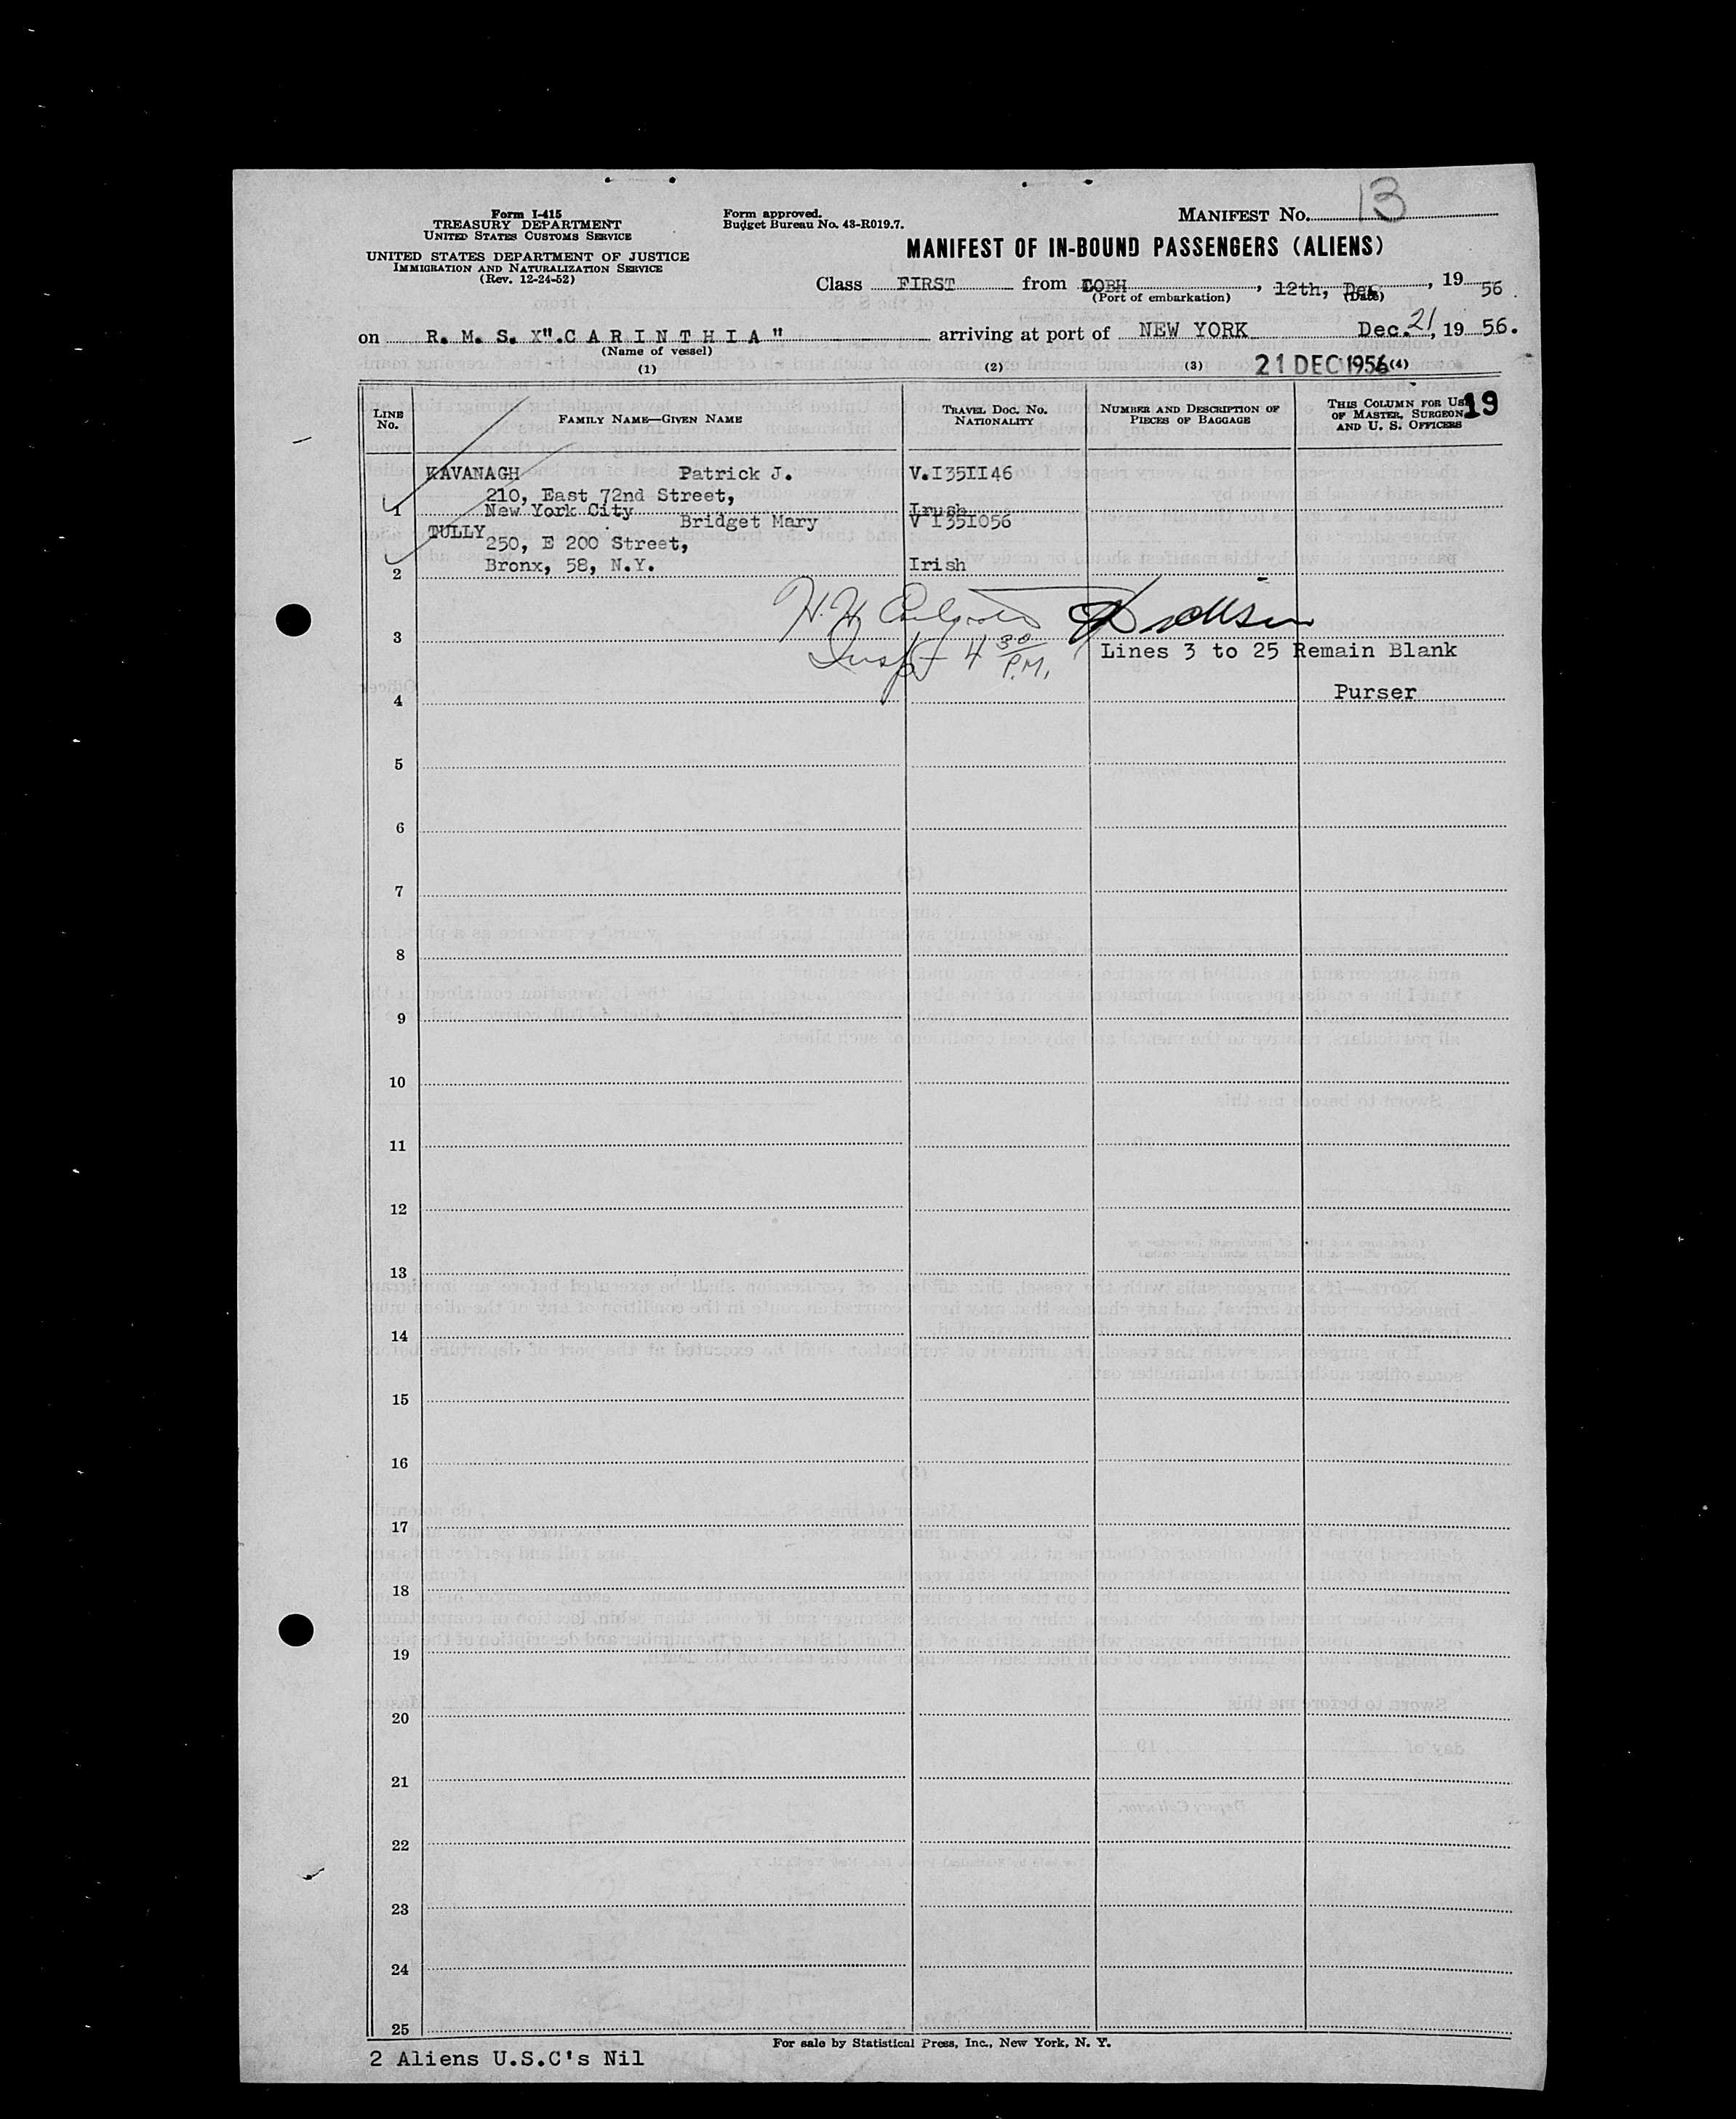 Form I-415
TREASURY DEPARTMENT
UNITED STATES CUSTOMS SERVICE
UNITED STATES DEPARTMENT OF JUSTICE
IMMIGRATION AND NATURALIZATION SERVICE
(Rev. 12-24-52)
Form approved.
Budget Bureau No. 43-R019.7.
MANIFEST No. 13
MANIFEST OF IN-BOUND PASSENGERS (ALIENS)
Class FIRST from COBH, 12th, Dec, 19 56.
(Port of embarkation) (Date)
on R. M. S. X". C A R I N T H I A " arriving at port of NEW YORK Dec. 21, 19 56.
(Name of vessel)
21 DEC 1956
(1) (2) (3) (4)
LINE No.
FAMILY NAME—GIVEN NAME
TRAVEL DOC. NO. NATIONALITY
NUMBER AND DESCRIPTION OF PIECES OF BAGGAGE
THIS COLUMN FOR USE OF MASTER, SURGEON, AND U. S. OFFICERS
19
KAVANAGH Patrick J. V.I35II46
210, East 72nd Street,
1 New York City Irush
TULLY Bridget Mary V I35I056
250, E 200 Street,
2 Bronx, 58, N.Y. Irish
3
Insp 4 30 P.M.
Lines 3 to 25 Remain Blank
4 Purser
5
6
7
8
9
10
11
12
13
14
15
16
17
18
19
20
21
22
23
24
25
For sale by Statistical Press, Inc., New York, N. Y.
2 Aliens U.S.C's Nil